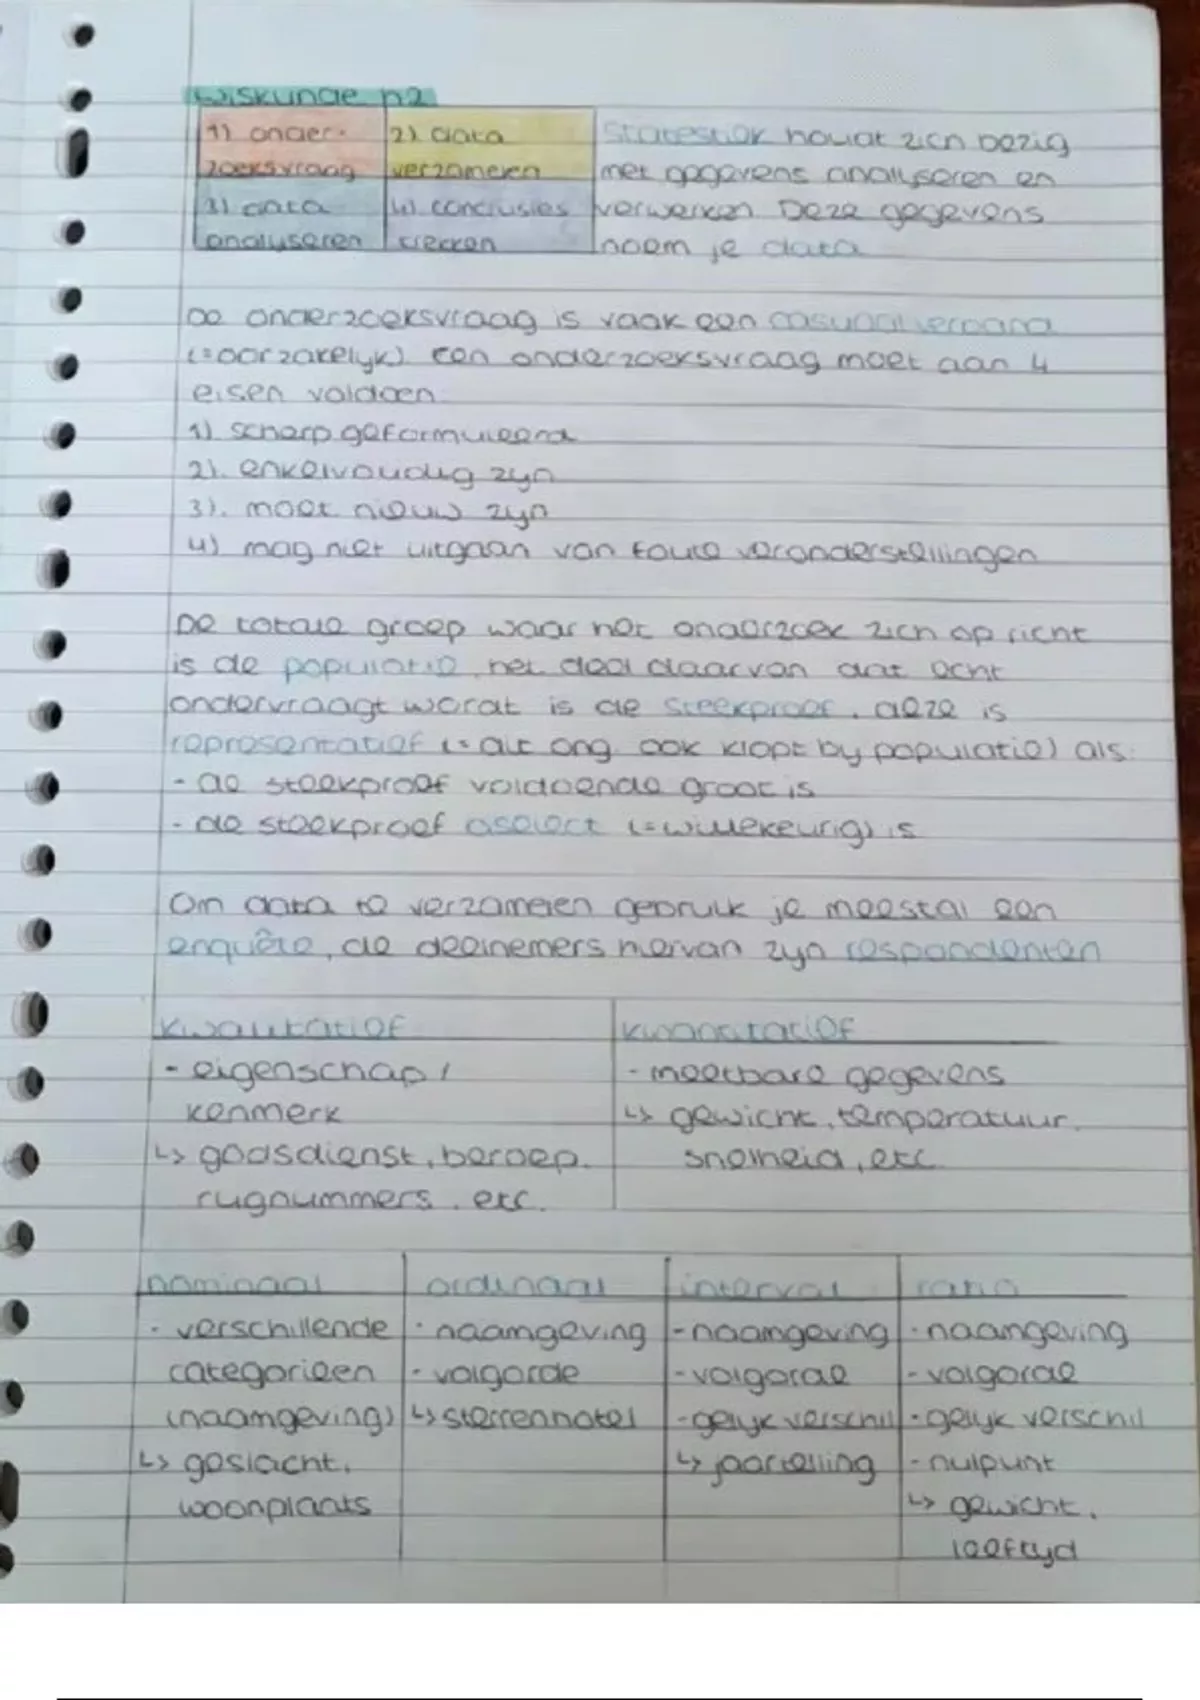 wiskunde h2
1) onder-
zoeksvraag
2) data
verzamelen
3) data
analyseren
4) conclusies
trekken
Statestiek houdt zich bezig
met gegevens analyseren en
verwerken. Deze gegevens
noem je data
De onderzoeksvraag is vaak een casuaal verband
(=oorzakelyk). Een onderzoeksvraag moet aan 4
eisen voldoen:
1) scherp geformuleerd
2). enkelvoudig zyn
3). moet nieuw zyn
4) mag niet uitgaan van foute veronderstellingen
De totale groep waar het onderzoek zich op richt
is de populatie, het deel daarvan dat echt
ondervraagt wordt is de steekproef. deze is
representatief (= dit ong. ook klopt by populatie) als:
- de steekproef voldoende groot is
- de steekproef aselect (=willekeurig) is
Om data te verzamelen gebruik je meestal een
enquête, de deelnemers hiervan zyn respondenten
kwalitatief
- eigenschap /
kenmerk
↳ godsdienst, beroep,
rugnummers, etc.
kwantitatief
- meetbare gegevens
↳ gewicht, temperatuur,
snelheid, etc
nominaal
- verschillende
categorieen
(naamgeving)
↳ geslacht,
woonplaats
ordinaal
- naamgeving
- volgorde
↳ sterrenhotel
interval
- naamgeving
- volgorde
- gelyk verschil
↳ jaartelling
ratio
- naamgeving
- volgorde
- gelyk verschil
- nulpunt
↳ gewicht,
leeftyd